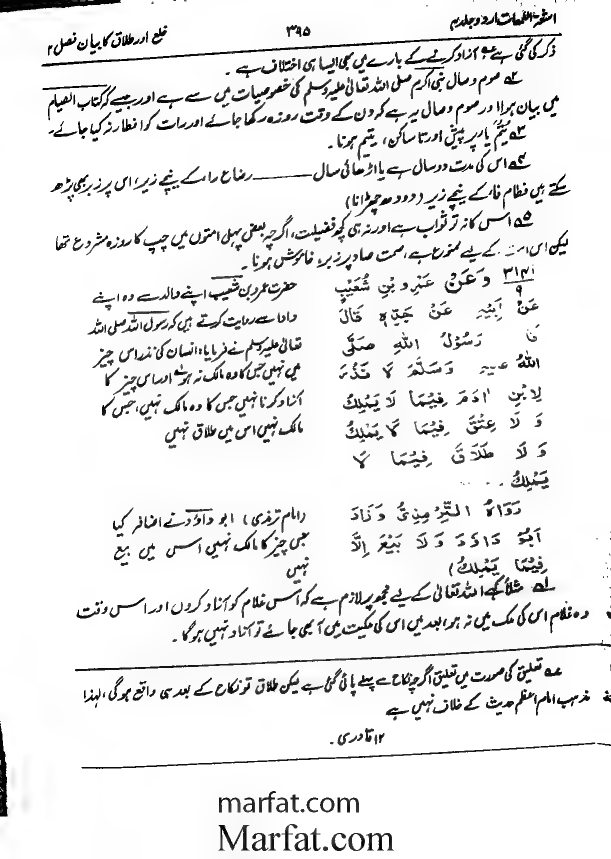 اشعۃ اللمعات اردو جلد ۳۹۵ خلع اور طلاق کا بیان فصل ۲
ذکر کی گئی ہے آزاد کرنے کے بارے میں بھی ایسا ہی اختلاف ہے۔
۲ صوم وصال نبی اکرم صلی اللہ تعالیٰ علیہ وسلم کی خصوصیات میں سے ہے اور جیسے کہ کتاب الصیام
میں بیان ہوا اور صوم وصال یہ ہے کہ دن کے وقت روزہ رکھا جائے اور رات کو افطار نہ کیا جائے۔
۳ یتم یا پر پیش اور تا ساکن، یتیم ہونا۔
۴ اس کی مدت دو سال ہے یا اڑھائی سال ــــ رضاع را کے نیچے زیر، اس پر زبر بھی پڑھ
سکتے ہیں فطام فا کے نیچے زیر (دودھ چھڑانا)
۵ اس کا نہ تو ثواب ہے اور نہ ہی کچھ فضیلت، اگرچہ بعض پہلی امتوں میں چپ کا روزہ مشروع تھا
لیکن اس کے لیے ممنوع ہے، صمت صاد پر زبر، خاموش ہونا۔
۳۱۴۱ وَعَنْ عَمْرِو بْنِ شُعَيْبٍ
۹
عَنْ اَبِيْهِ عَنْ جَدِّهٖ قَالَ
قَالَ رَسُوْلُ اللهِ صَلَّى
اللهُ عَلَيْهِ وَسَلَّمَ لَا نَذْرَ
لِابْنِ اٰدَمَ فِيْمَا لَا يَمْلِكُ
وَ لَا عِتْقَ فِيْمَا لَا يَمْلِكُ
وَ لَا طَلَاقَ فِيْمَا لَا
يَمْلِكُ
رَوَاهُ التِّرْمِذِيُّ وَ زَادَ
اَبُوْ دَاوٗدَ وَ لَا بَيْعَ اِلَّا
فِيْمَا يَمْلِكُ)
حضرت عمرو بن شعیب اپنے والد سے وہ اپنے
دادا سے روایت کرتے ہیں کہ رسول اللہ صلی اللہ
تعالیٰ علیہ وسلم نے فرمایا: انسان کی نذر اس چیز
میں نہیں جس کا وہ مالک نہ ہو اور اس چیز کا
آزاد کرنا نہیں جس کا وہ مالک نہیں، جس کا
مالک نہیں اس میں طلاق نہیں
(امام ترمذی) ابو داؤد نے اضافہ کیا
جس چیز کا مالک نہیں اس میں بیع
نہیں
۱ مثلاً کہے اللہ تعالیٰ کے لیے مجھ پر لازم ہے کہ اس غلام کو آزاد کردوں اور اس وقت
وہ غلام اس کی ملک میں نہ ہو، بعد میں اس کی ملکیت میں آ بھی جائے تو آزاد نہیں ہوگا۔
تعلیق کی صورت میں تعلیق اگرچہ نکاح سے پہلے پائی گئی ہے لیکن طلاق تو نکاح کے بعد ہی واقع ہوگی، لہذا
مذہب امام اعظم حدیث کے خلاف نہیں ہے
۱۲ قادری۔
marfat.com
Marfat.com